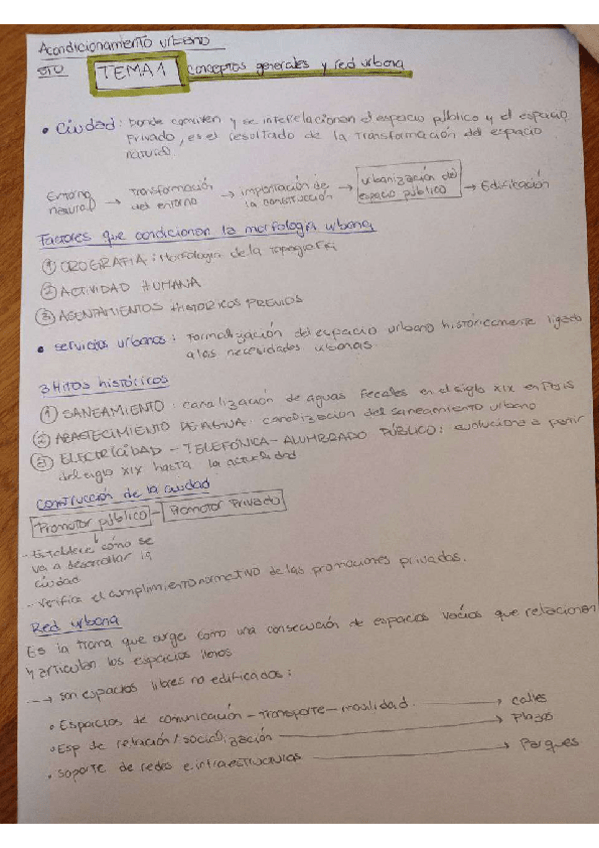 Acondicionamiento urbano
TEMA 1 Conceptos generales y red urbana
• Ciudad: Donde conviven y se interrelacionan el espacio público y el espacio
Privado, es el resultado de la transformación del espacio
natural
Entorno natural → Transformación del entorno → implantación de la construcción → urbanización del espacio público → Edificación
Factores que condicionan la morfología urbana
① OROGRAFIA: Morfología de la topografía
② ACTIVIDAD HUMANA
③ ASENTAMIENTOS HISTORICOS PREVIOS
• servicios urbanos: Formalización del espacio urbano históricamente ligado
a las necesidades urbanas.
3 Hitos históricos
① SANEAMIENTO: canalización de aguas Fecales en el siglo XIX en París
② ABASTECIMIENTO DE AGUA: canalización del saneamiento urbano
③ ELECTRICIDAD - TELEFÓNICA - ALUMBRADO PÚBLICO: evoluciona a partir
del siglo XIX hasta la actualidad
Construcción de la ciudad
Promotor público - Promotor Privado
- Establece cómo se
va a desarrollar la
ciudad
- Verifica el cumplimiento normativo de las promociones privadas.
Red urbana
Es la trama que surge como una consecución de espacios vacíos que relacionan
y articulan los espacios llenos
→ son espacios libres no edificados:
• Espacios de comunicación - transporte - movilidad → calles
• Esp de relación / socialización → Plazas
• Soporte de redes e infraestructuras → Parques